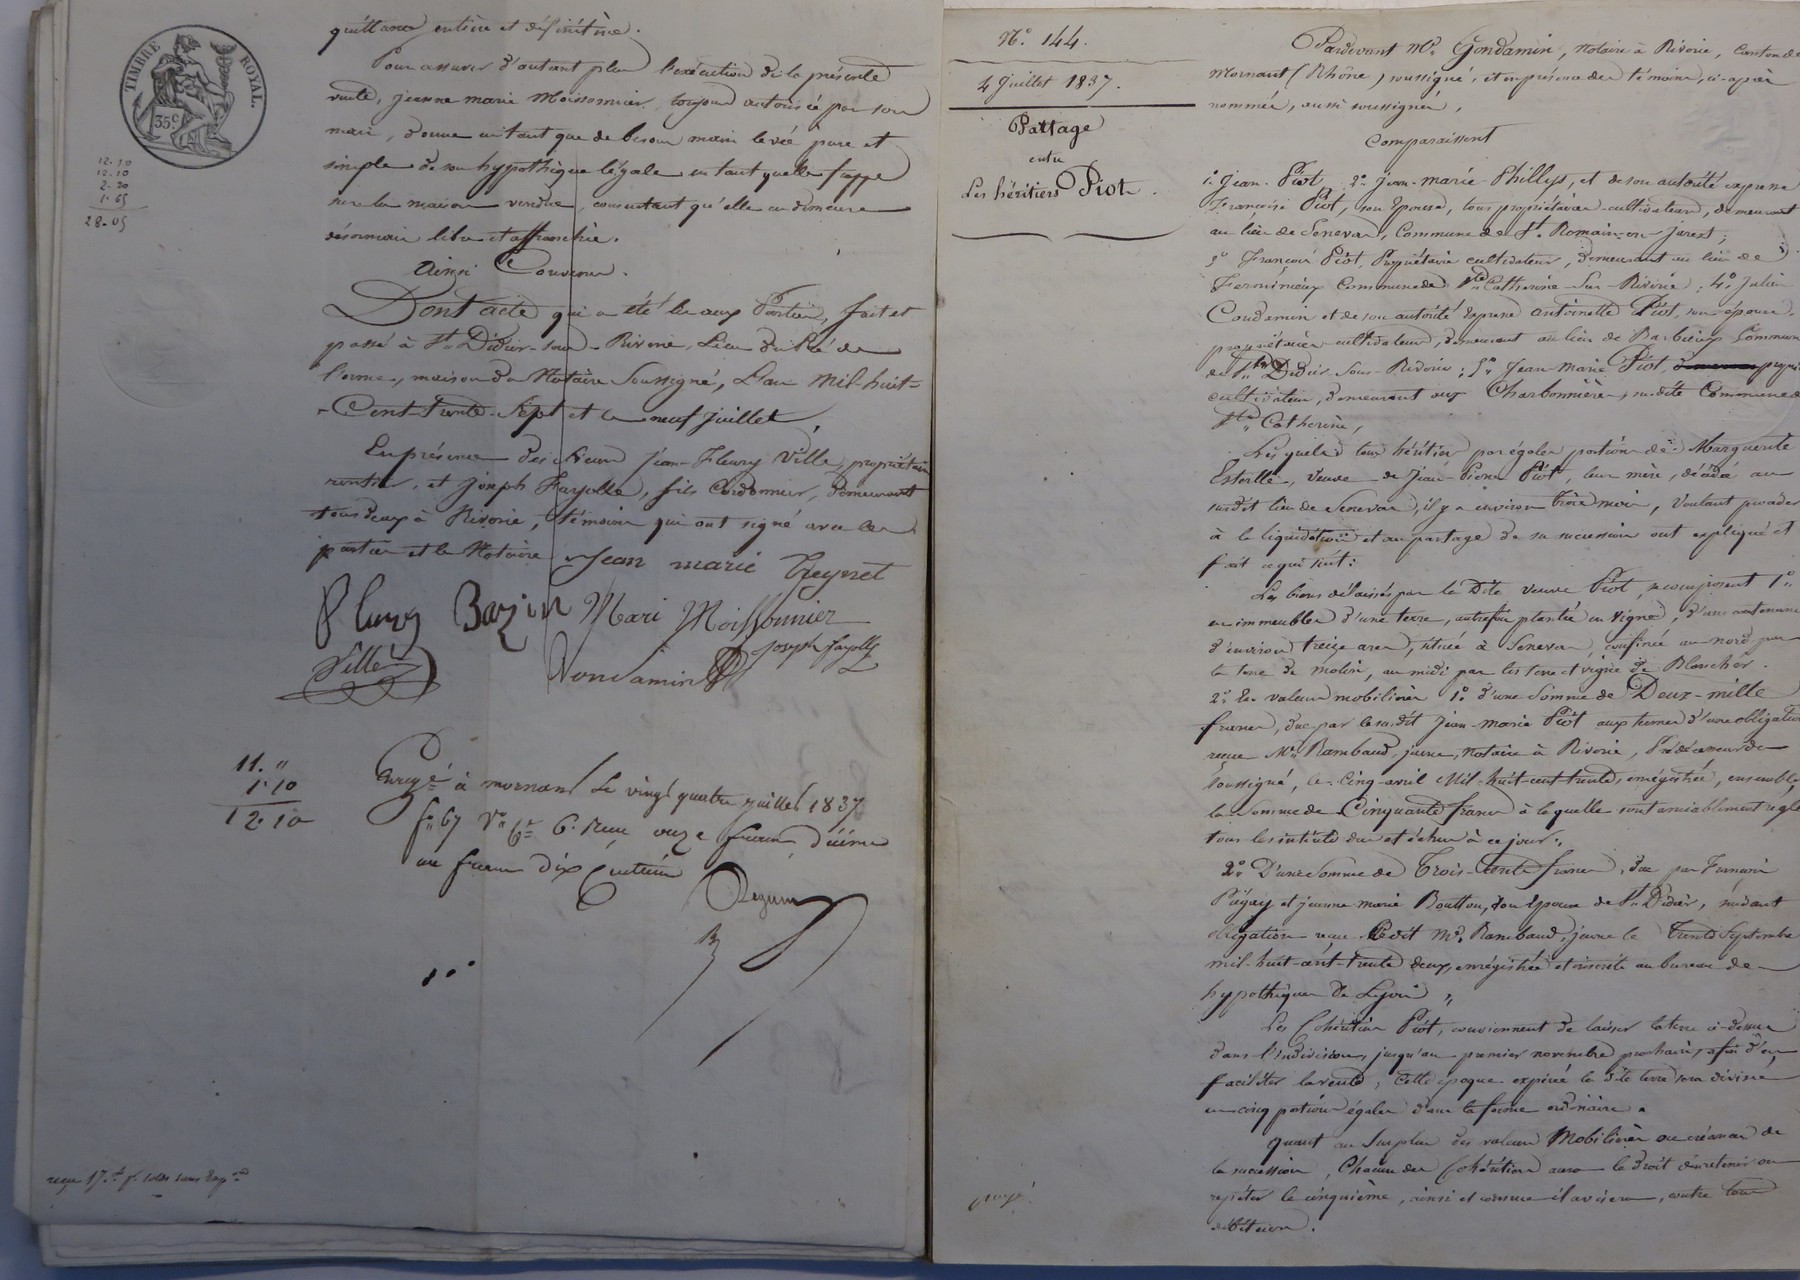 TIMBRE ROYAL.
35 c
12.10
12.10
2.20
1.65
28.05
quittance entière et définitive.
Pour assurer d'autant plus l'exécution de la présente
vente, jeanne marie Moissonnier, toujours autorisée par son
mari, donne autant que de besoin main levée pure et
simple de son hypothèque légale en tant qu'elle frappe
sur la maison vendue, consentant qu'elle en demeure
désormais libre et affranchie.
Ainsi Convenu.
Dont acte qui a été lu aux Parties, fait et
passé à St. Didier-sous-Riverie, Lieu du Pré de
l'orme, maison du Notaire soussigné, L'an Mil-huit-
Cent-trente-sept et le neuf juillet,
En présence des sieurs Jean-Fleury Ville, propriétaire
rentier, et Joseph Fayolle, fils Cordonnier, demeurant
tous deux à Riverie, témoins qui ont signé avec les
parties et le Notaire. Jean marie Peyret
Fleury Bazin Mari Moissonnier
Ville Gondamin Joseph fayolle
11. "
1.10
12.10
Enregé à mornant Le vingt quatre juillet 1837
fo 67 Vo Ce 6. Reçu onze francs, dixième
un franc dix Centimes
N° 144.
4 Juillet 1837.
Partage
entre
Les héritiers Piot.
Pardevant Me. Gondamin, Notaire à Riverie, Canton de
Mornant (Rhône) soussigné, et en présence des témoins, ci-après
nommés, aussi soussignés,
Comparaissent
1° Jean Piot, 2° Jean-marie Phillips, et de son autorité expresse
Françoise Piot, son épouse, tous propriétaires-cultivateurs, demeurant
au lieu de Senevas, Commune de St. Romain-en-Jarest;
3° François Piot, Propriétaire cultivateur, demeurant au lieu de
Commune de Ste Catherine-Sur-Riverie; 4° Julien
Condamin et de son autorité expresse antoinette Piot, son épouse,
propriétaires-cultivateurs, demeurant au lieu de Barbieux Commune
de St. Didier-Sous-Riverie; 5° Jean-Marie Piot,
cultivateur, demeurant aux Charbonnières, susdite Commune de
Ste Catherine,
Lesquels tous héritiers par égales portions de Marguerite
veuve de Jean-Pierre Piot, leur mère, décédée au
susdit lieu de Senevas, il y a environ trois mois, Voulant procéder
à la liquidation et au partage de sa succession ont expliqué et
fait ce qui suit:
Les biens délaissés par la Dite veuve Piot, se composent 1°
en immeubles d'une terre, autrefois plantée en vigne, d'une contenance
d'environ treize ares, située à Senevas, confinée au nord par
la terre de molin, au midi par les terre et vigne de Blancher.
2° En valeurs mobilières 1° d'une Somme de Deux-mille
francs, due par le susdit Jean-marie Piot aux termes d'une obligation
reçue Me Rambaud, jeune, Notaire à Riverie, Prédécesseur du
soussigné, le cinq avril Mil-huit-cent-trente, enregistrée, ensemble,
la Somme de Cinquante francs à laquelle sont amiablement réglés
tous les intérêts dus et échus à ce jour.
2° D'une Somme de Trois-Cents francs, due par
et jeanne-marie Boutton, son épouse de St. Didier, suivant
obligation reçue Ledit Me. Rambaud, jeune le trente Septembre
mil-huit-cent-trente deux, enregistrée et inscrite au bureau des
hypothèques de Lyon.
Les Cohéritiers Piot, conviennent de laisser la terre ci-dessus
dans l'indivision, jusqu'au premier novembre prochain, afin d'en
faciliter la vente; Cette époque expirée la dite terre sera divisée
en cinq portions égales dans la forme ordinaire.
Quant au Surplus des valeurs Mobilières ou créances de
la succession, Chacun des Cohéritiers aura le droit d'en retenir ou
répéter le cinquième, ainsi et comme il avisera, contre tous
détenteurs.